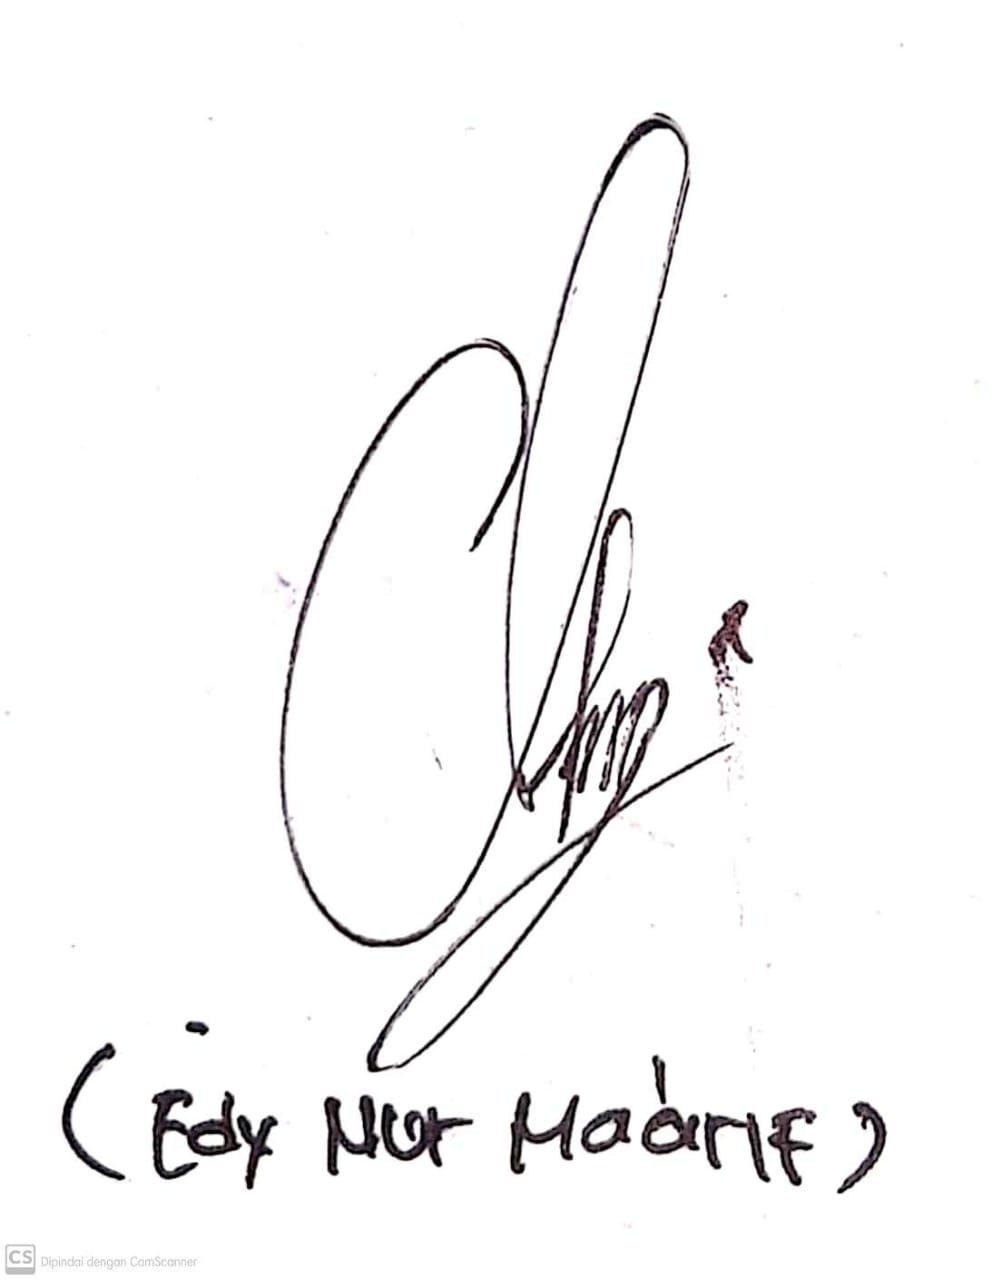 (Edy Nur Ma'arif)
CS Dipindai dengan CamScanner